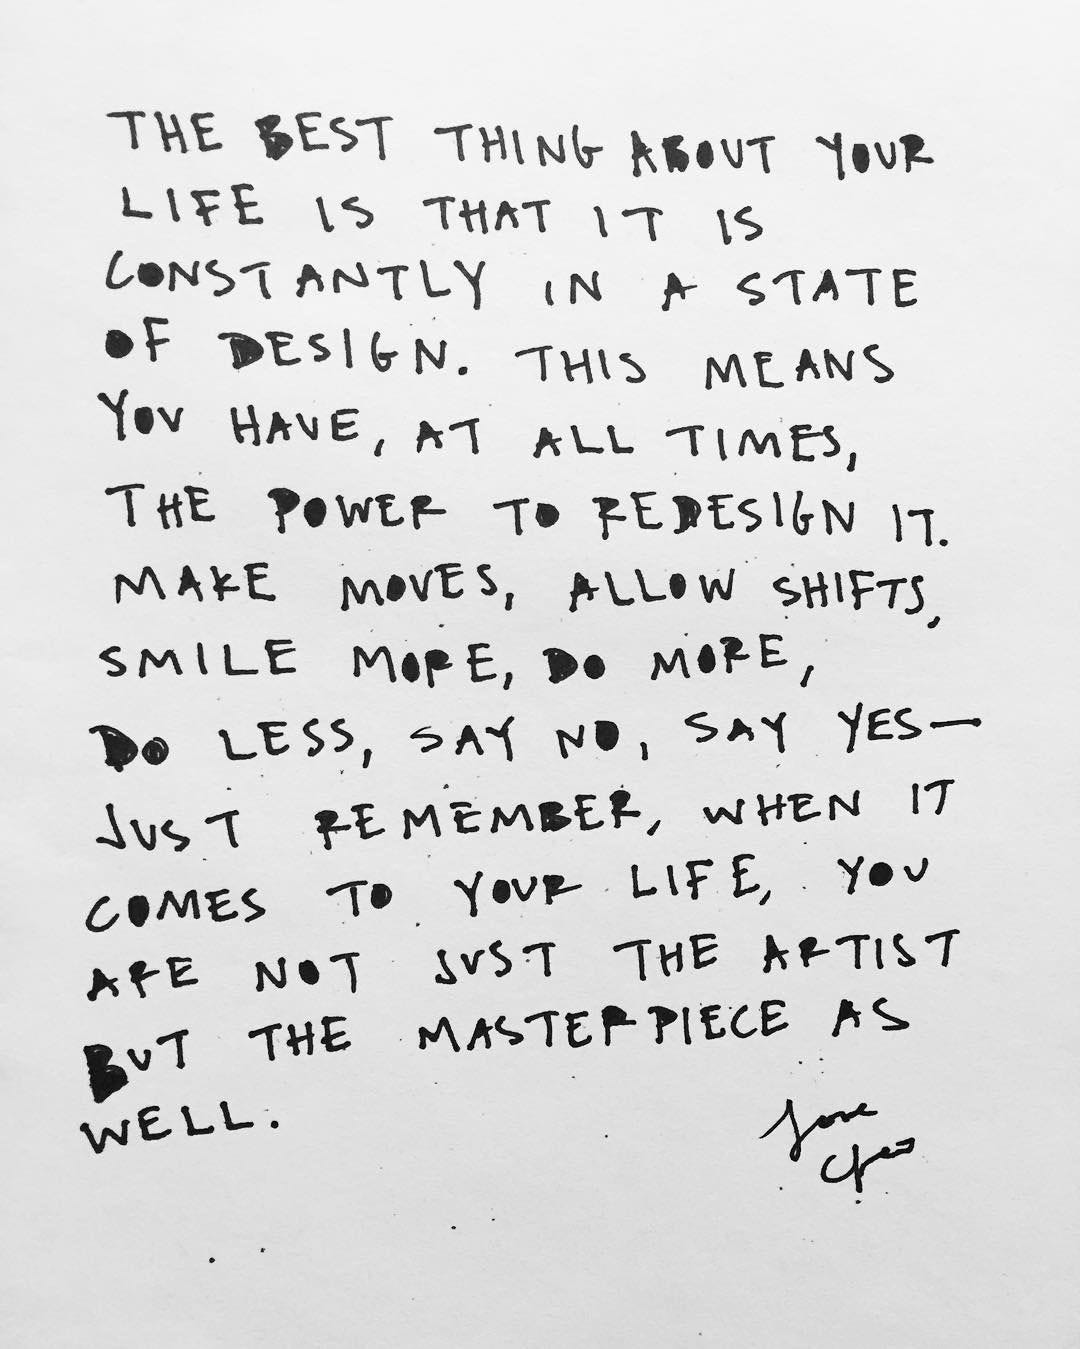 THE BEST THING ABOUT YOUR
LIFE IS THAT IT IS
CONSTANTLY IN A STATE
OF DESIGN. THIS MEANS
YOU HAVE, AT ALL TIMES,
THE POWER TO REDESIGN IT.
MAKE MOVES, ALLOW SHIFTS,
SMILE MORE, DO MORE,
DO LESS, SAY NO, SAY YES—
JUST REMEMBER, WHEN IT
COMES TO YOUR LIFE, YOU
ARE NOT JUST THE ARTIST
BUT THE MASTERPIECE AS
WELL.
love
cleo